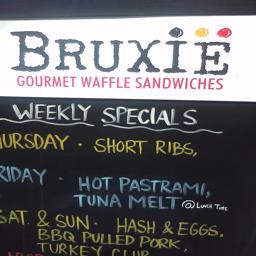 BRUXIE
GOURMET WAFFLE SANDWICHES
WEEKLY SPECIALS
HURSDAY · SHORT RIBS,
RIDAY · HOT PASTRAMI,
TUNA MELT @ LUNCH TIME
SAT. & SUN · HASH & EGGS,
BBQ PULLED PORK,
TURKEY CLUB